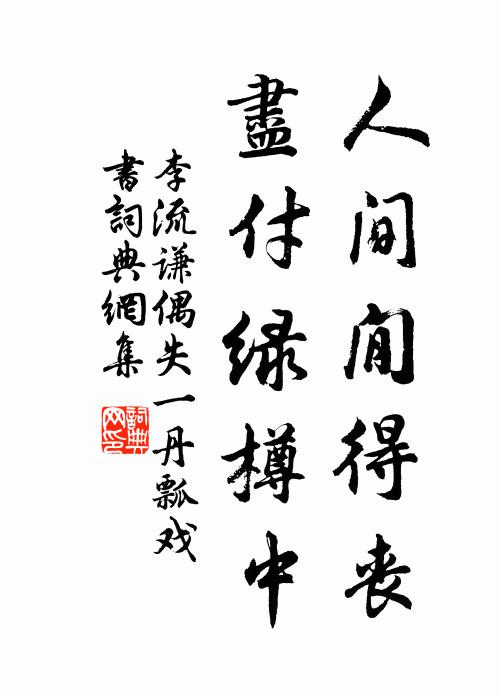 人間閒得喪
盡付綠樽中
李流谦偶失一丹瓢戏
書詞典網集
詞典
网印